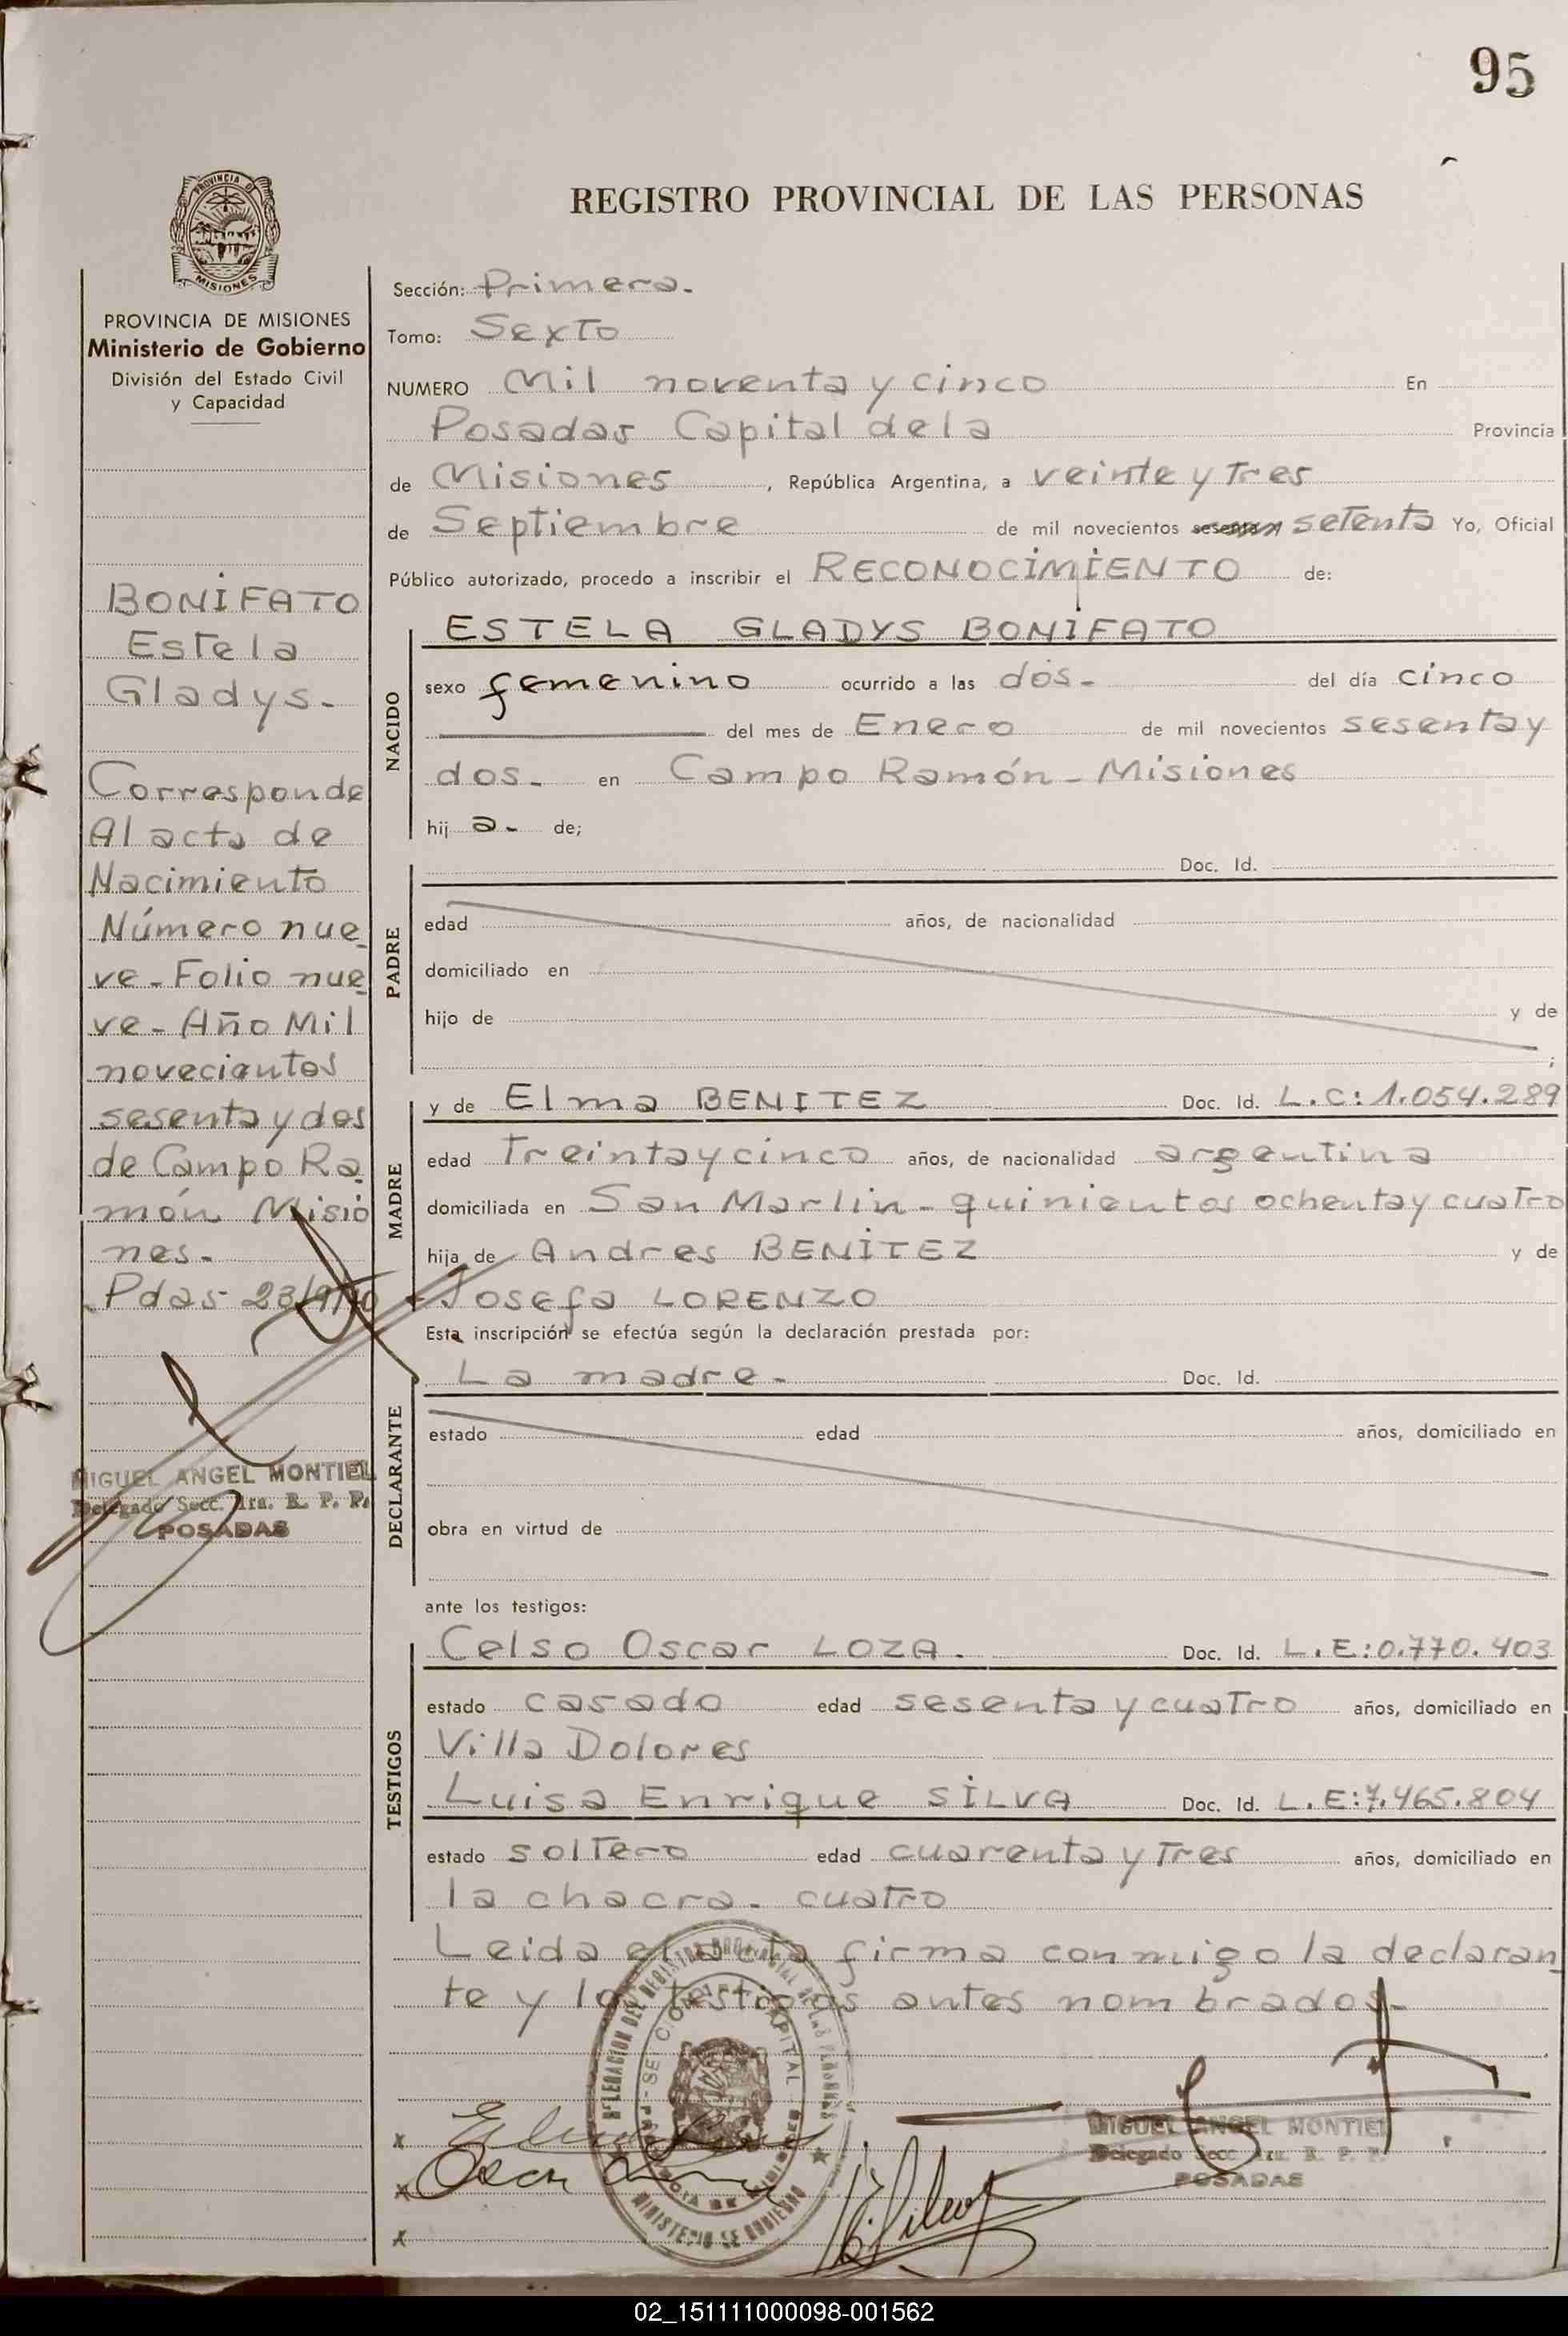 95
REGISTRO PROVINCIAL DE LAS PERSONAS
PROVINCIA DE
MISIONES
PROVINCIA DE MISIONES
Ministerio de Gobierno
División del Estado Civil
y Capacidad
BONIFATO
Estela
Gladys.-
Corresponde
Al acta de
Nacimiento
Número nue
ve - Folio nue
ve - Año Mil
novecientos
sesenta y dos
de Campo Ra
món Misio
nes.-
Pdas 23/9/70
MIGUEL ANGEL MONTIEL
Delegado Secc. 1ra. R. P. P.
POSADAS
Sección: Primera.-
Tomo: Sexto
NUMERO Mil noventa y cinco En
Posadas Capital de la Provincia
de Misiones , República Argentina, a veinte y Tres
de Septiembre de mil novecientos sesenta setenta Yo, Oficial
Público autorizado, procedo a inscribir el RECONOCIMIENTO de:
NACIDO
ESTELA GLADYS BONIFATO
sexo femenino ocurrido a las dos.- del día cinco
del mes de Enero de mil novecientos sesenta y
dos.- en Campo Ramón - Misiones
hij a.- de;
PADRE
Doc. Id.
edad años, de nacionalidad
domiciliado en
hijo de y de
;
MADRE
y de Elma BENITEZ Doc. Id. L.C: 1.054.289
edad Treinta y cinco años, de nacionalidad argentina
domiciliada en San Martin - quinientos ochenta y cuatro
hija de Andres BENITEZ y de
Josefa LORENZO
Esta inscripción se efectúa según la declaración prestada por:
DECLARANTE
La madre.- Doc. Id.
estado edad años, domiciliado en
obra en virtud de
ante los testigos:
TESTIGOS
Celso Oscar LOZA.- Doc. Id. L.E: 0.770.403
estado casado edad sesenta y cuatro años, domiciliado en
Villa Dolores
Luisa Enrique SILVA Doc. Id. L.E: 7.465.804
estado soltero edad cuarenta y Tres años, domiciliado en
la chacra - cuatro
Leida el acta firma conmigo la declaran
te y los testigos antes nombrados.-
MINISTERIO DE GOBIERNO
MIGUEL ANGEL MONTIEL
Delegado Secc. 1ra. R. P. P.
POSADAS
02_151111000098-001562